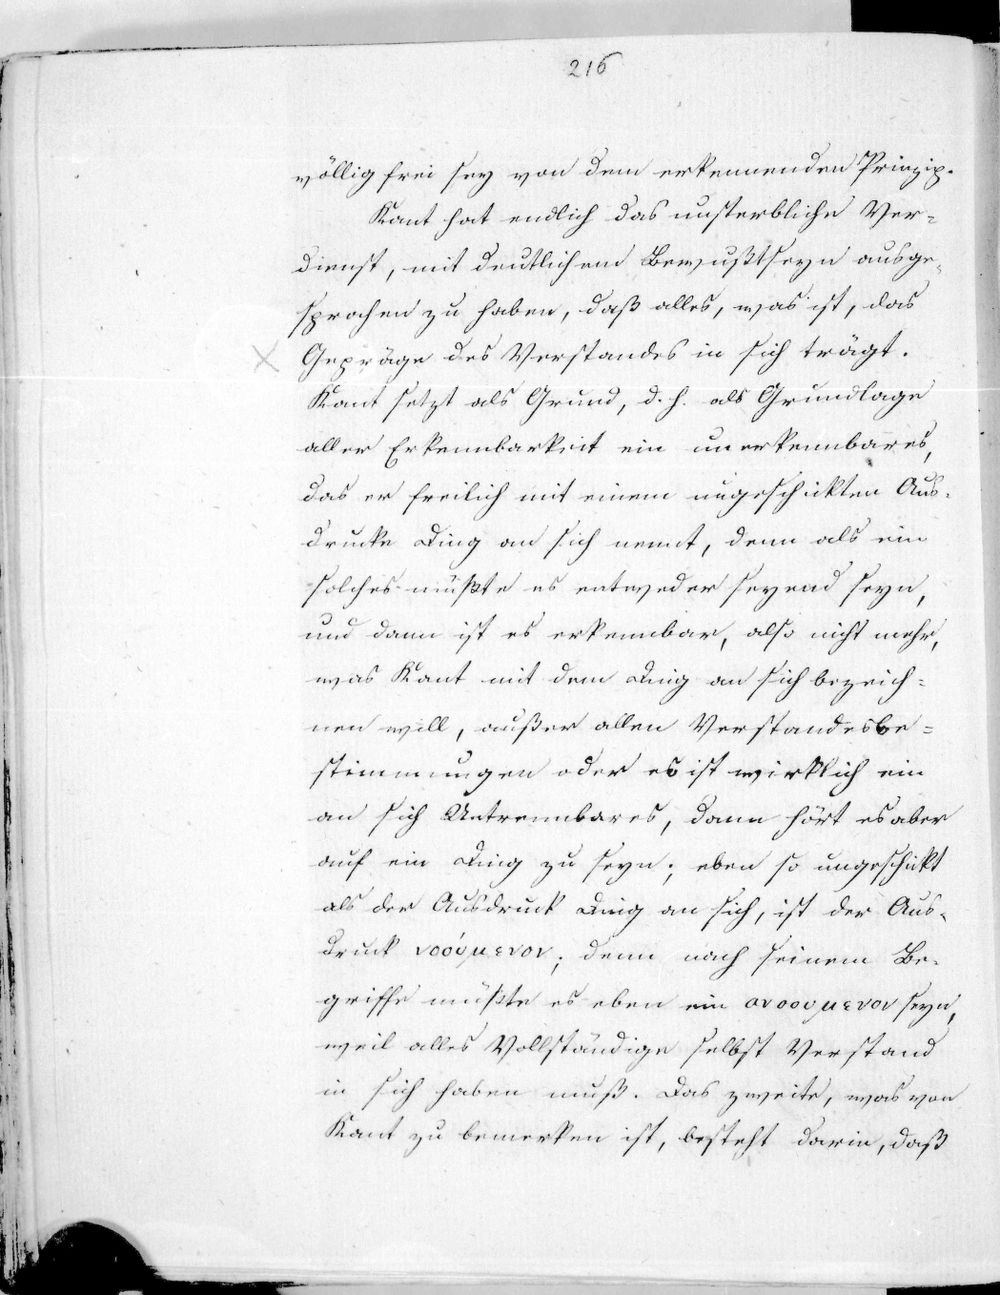 216
völlig frei sey von dem erkennenden Prinzip.
Kant hat endlich das unsterbliche Ver=
dienst, mit deutlichem Bewußtseyn ausge=
sprochen zu haben, daß alles, was ist, das
Gepräge des Verstandes in sich trägt.
Kant setzt als Grund, d. h. als Grundlage
aller Erkennbarkeit ein unerkennbares,
das er freilich mit einem ungeschickten Aus=
drucke Ding an sich nennt, denn als ein
solches müßte es entweder seyend seyn,
und dann ist es erkennbar, also nicht mehr,
was Kant mit dem Ding an sich bezeich=
nen will, außer allen Verstandesbe=
stimmungen oder es ist wirklich ein
an sich Untrennbares, dann hört es aber
auf ein Ding zu seyn; eben so ungeschickt
als der Ausdruck Ding an sich, ist der Aus=
druck νοούμενον; denn nach seinem Be=
griffe müßte es eben ein ανοουμενον seyn,
weil alles Vollständige selbst Verstand
in sich haben muß. Das zweite, was von
Kant zu bemerken ist, besteht darin, daß